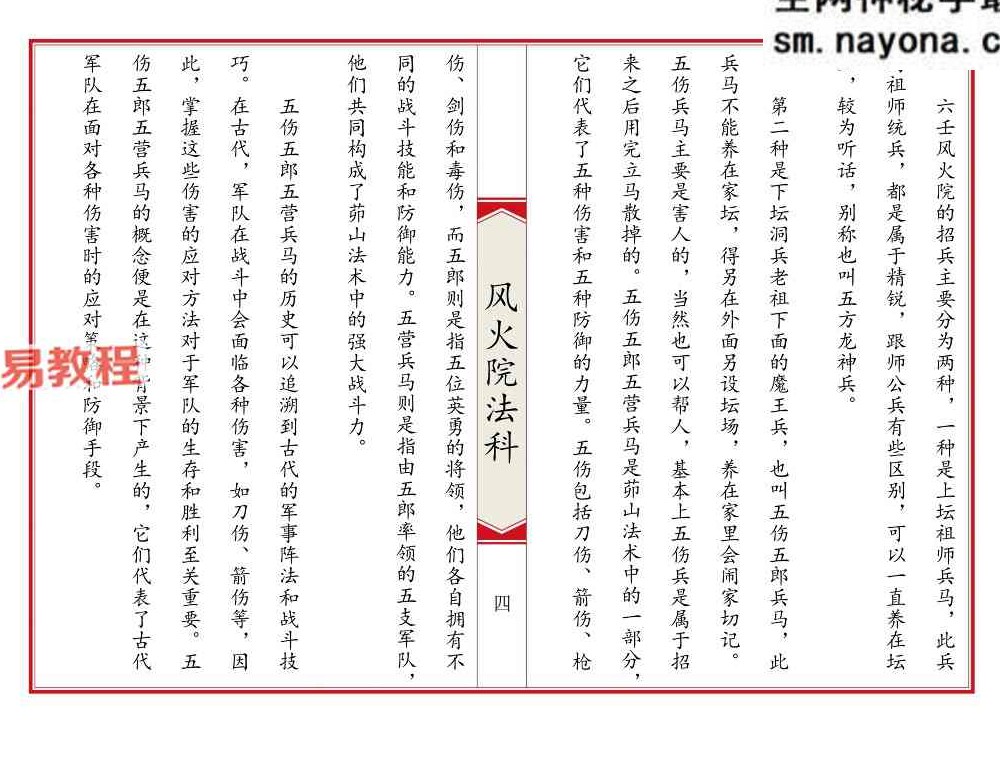 sm.nayona.c
六壬风火院的招兵主要分为两种，一种是上坛祖师兵马，此兵
祖师统兵，都是属于精锐，跟师公兵有些区别，可以一直养在坛
，较为听话，别称也叫五方龙神兵。
第二种是下坛洞兵老祖下面的魔王兵，也叫五伤五郎兵马，此
兵马不能养在家坛，得另在外面另设坛场，养在家里会闹家切记。
五伤兵马主要是害人的，当然也可以帮人，基本上五伤兵是属于招
来之后用完立马散掉的。五伤五郎五营兵马是茆山法术中的一部分，
它们代表了五种伤害和五种防御的力量。五伤包括刀伤、箭伤、枪
风火院法科
四
伤、剑伤和毒伤，而五郎则是指五位英勇的将领，他们各自拥有不
同的战斗技能和防御能力。五营兵马则是指由五郎率领的五支军队，
他们共同构成了茆山法术中的强大战斗力。
五伤五郎五营兵马的历史可以追溯到古代的军事阵法和战斗技
巧。在古代，军队在战斗中会面临各种伤害，如刀伤、箭伤等，因
此，掌握这些伤害的应对方法对于军队的生存和胜利至关重要。五
伤五郎五营兵马的概念便是在这种背景下产生的，它们代表了古代
军队在面对各种伤害时的应对策略和防御手段。
易教程